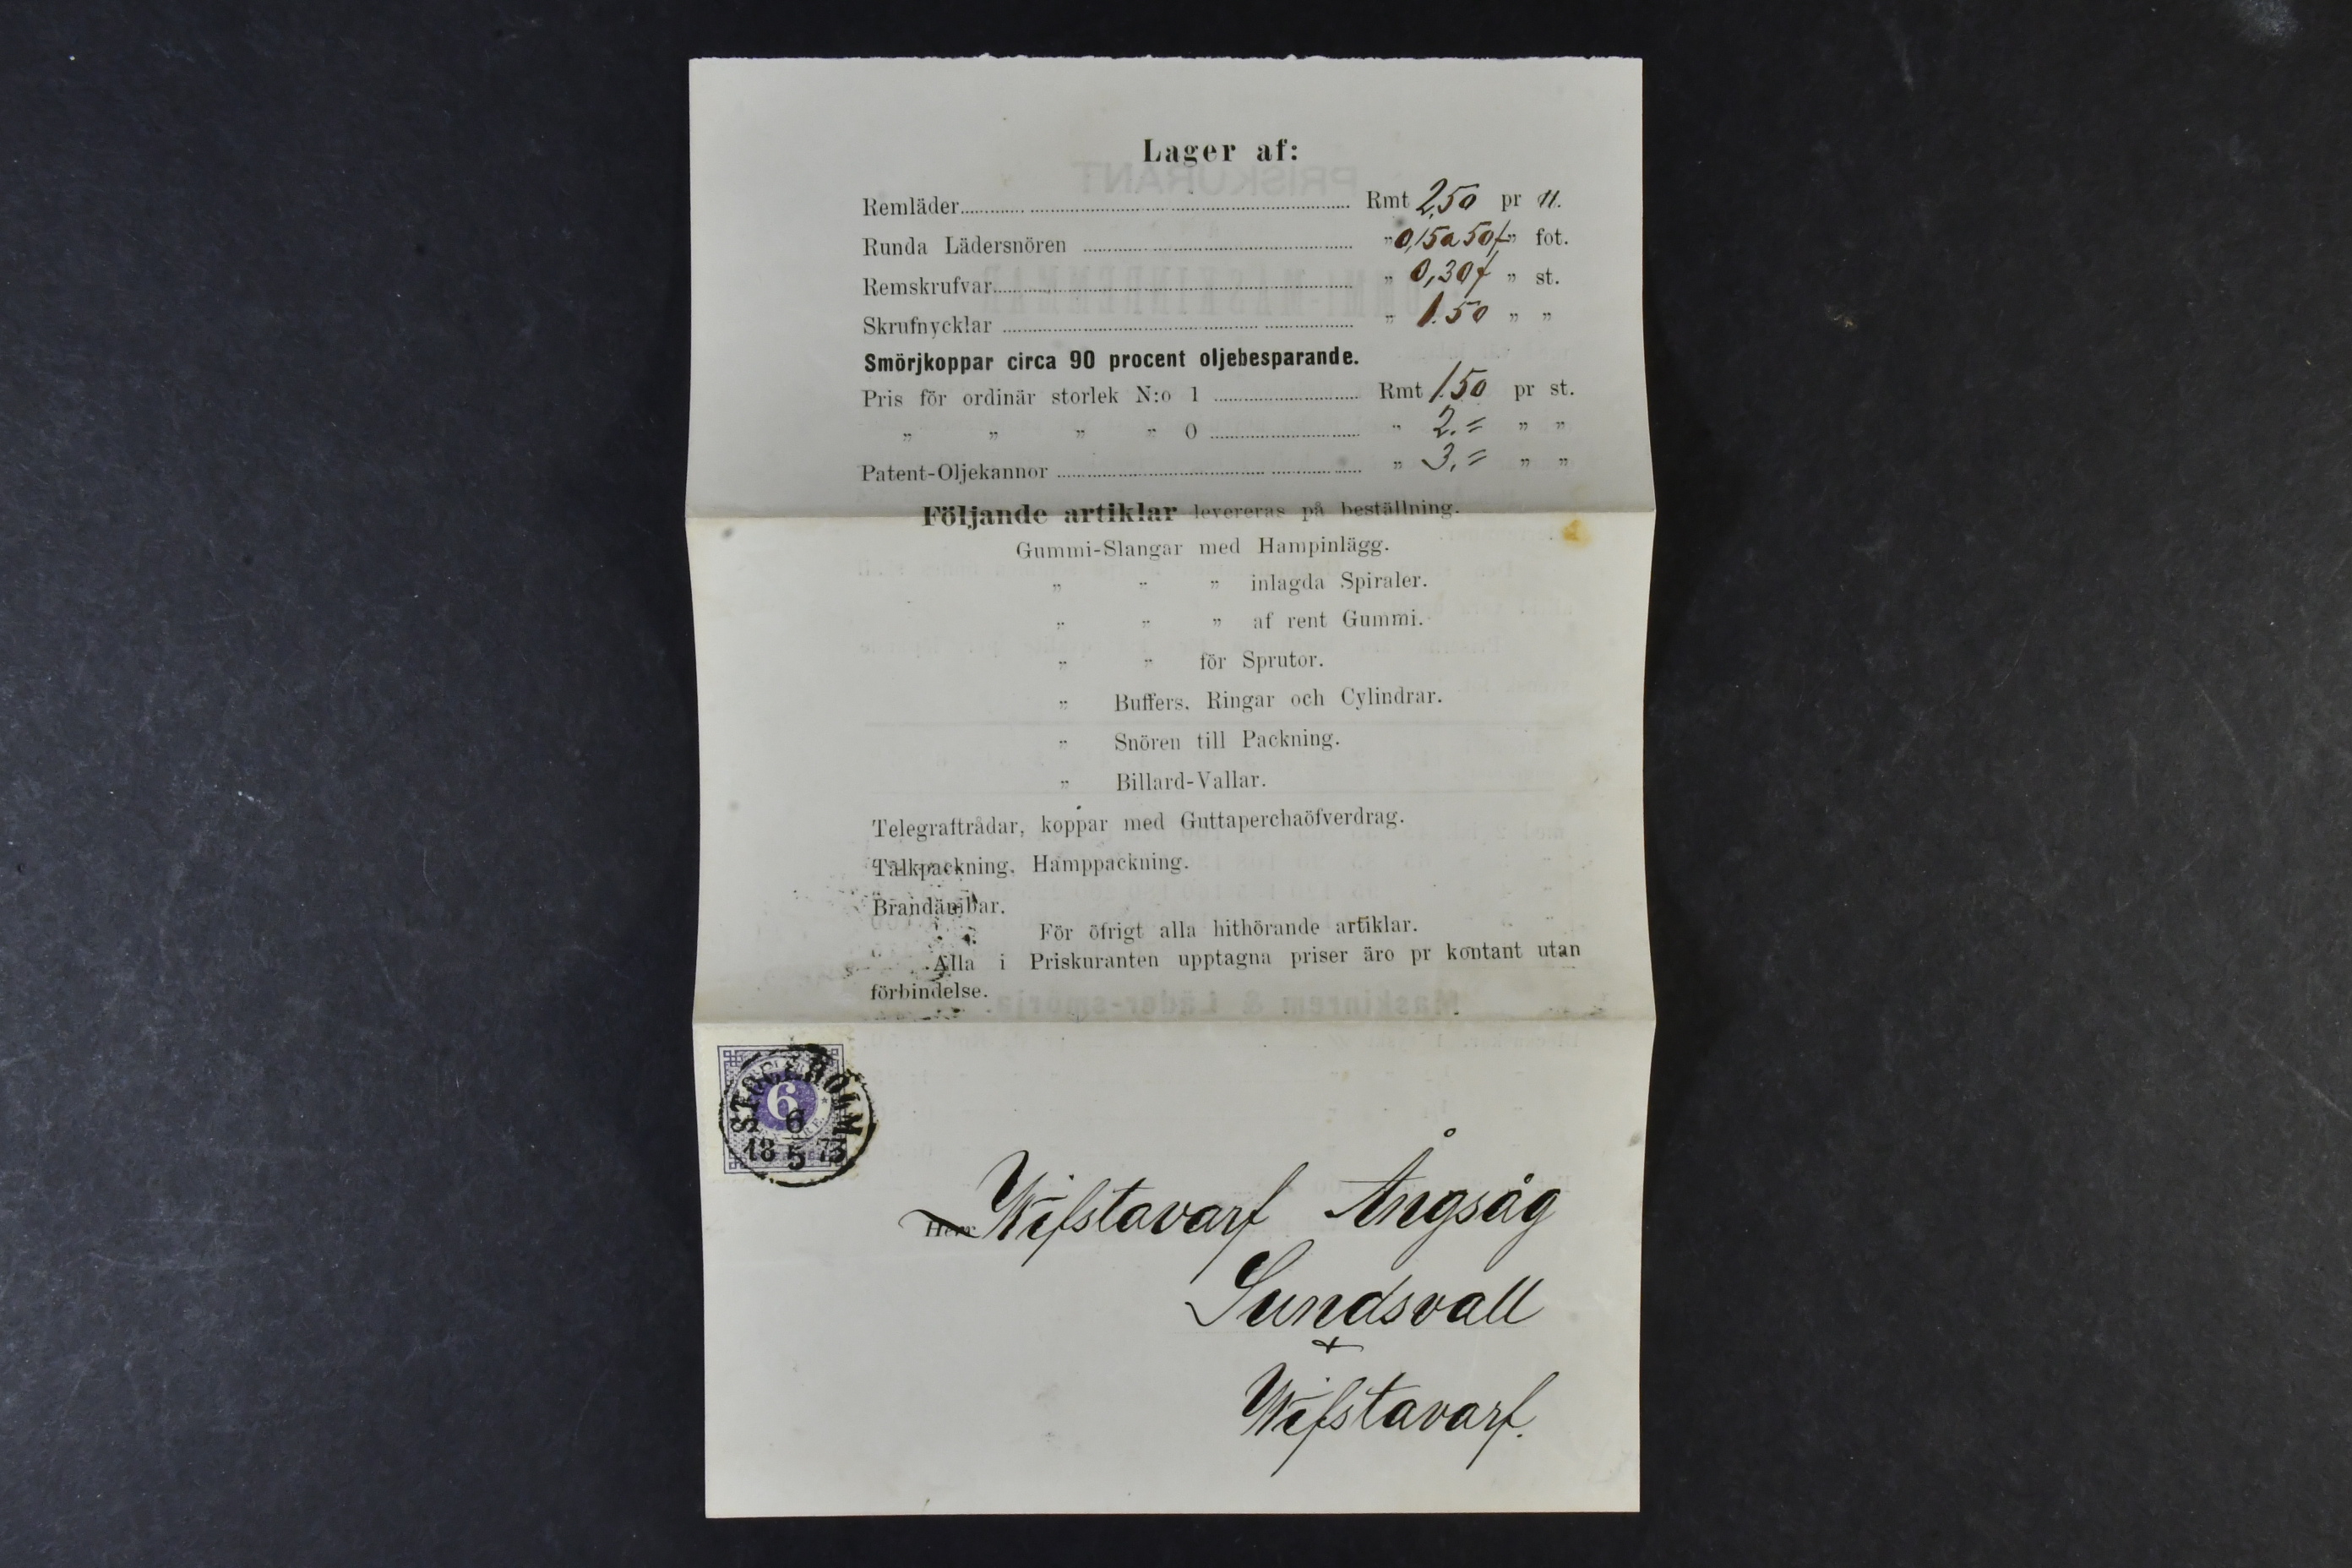 Lager af:
Remläder Rmt 2,50 pr ℔.
Runda Lädersnören " 0,15 a 50 f " fot.
Remskrufvar " 0,30 f " st.
Skrufnycklar " 1.50 " "
Smörjkoppar circa 90 procent oljebesparande.
Pris för ordinär storlek N:o 1 Rmt 1.50 pr st.
" " " " 0 " 2.= " "
Patent-Oljekannor " 3.= " "
Följande artiklar levereras på beställning.
Gummi-Slangar med Hampinlägg.
" " " inlagda Spiraler.
" " " af rent Gummi.
" " för Sprutor.
" Buffers, Ringar och Cylindrar.
" Snören till Packning.
" Billard-Vallar.
Telegraftrådar, koppar med Guttaperchaöfverdrag.
Talkpackning, Hamppackning.
Brandämbar.
För öfrigt alla hithörande artiklar.
Alla i Priskuranten upptagna priser äro pr kontant utan
förbindelse.
STOCKHOLM
6
6
18 5 73
Herr Wifstavarf Ångsåg
Sundsvall
Wifstavarf.